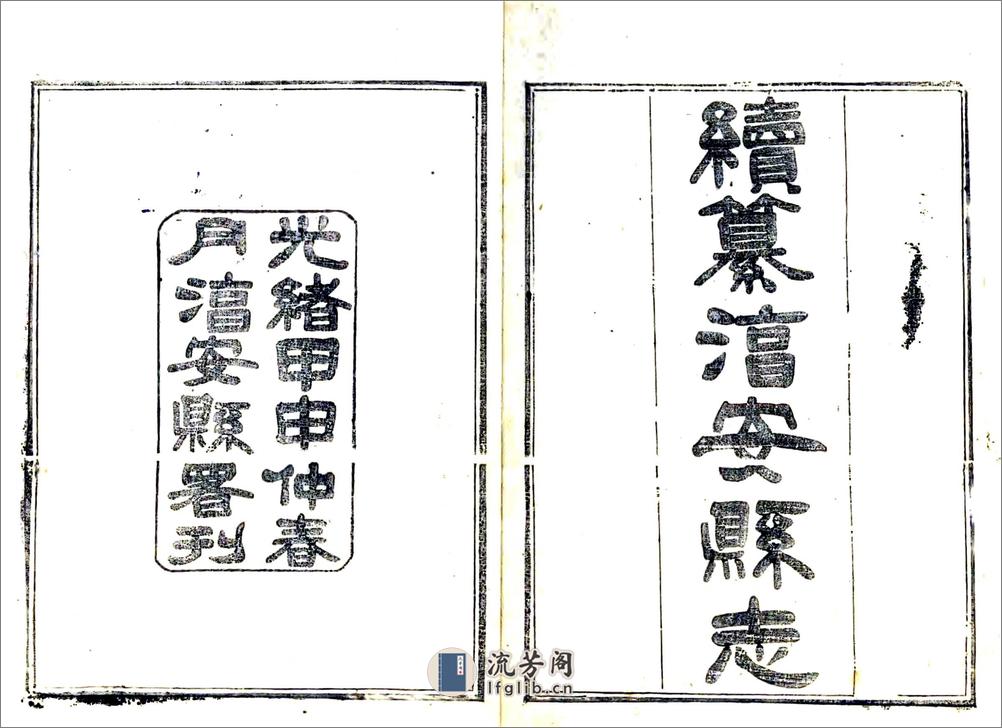 續纂淳安縣志
光緒甲申仲春
月淳安縣署刊
流芳阁
lfglib.cn